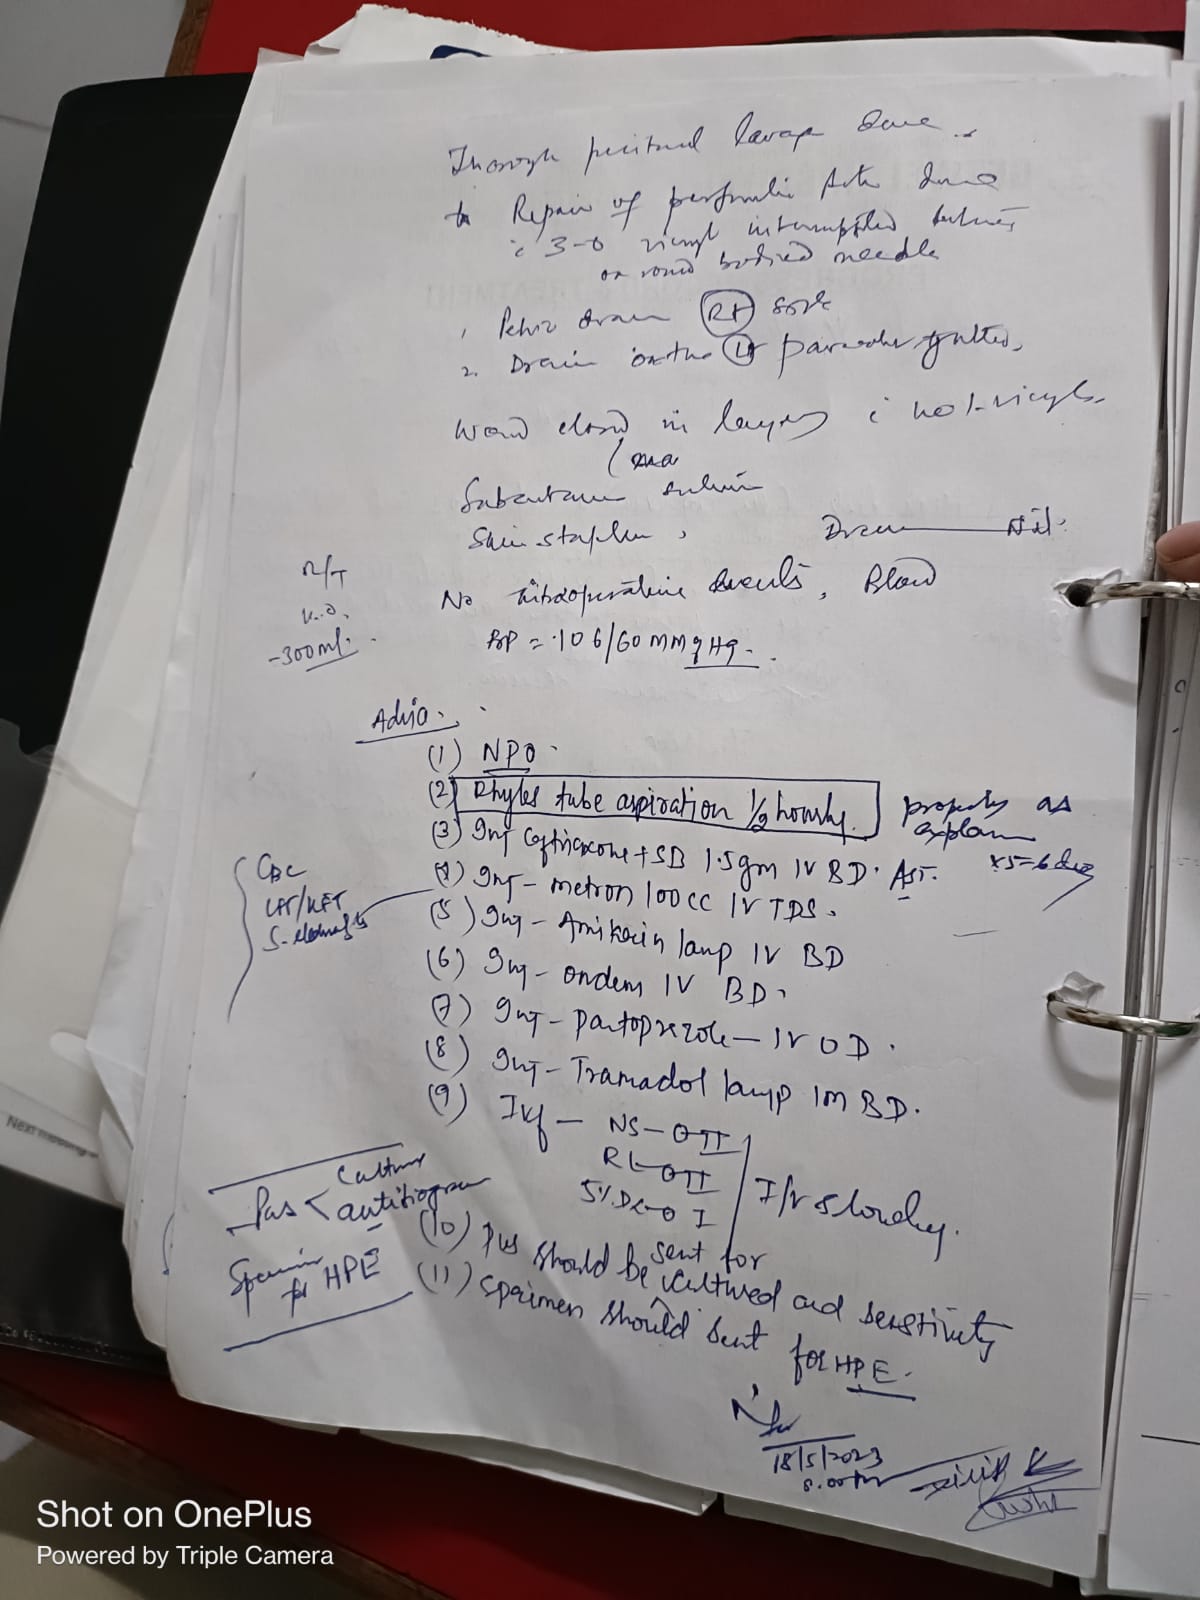 Thorough peritoneal lavage done
Repair of perforation
c 3-0 vicryl interrupted sutures
on round bodied needle
1. Pelvic drain Rt side
2. Drain on the Lt
Wound closed in layers c no 1- vicryl
Skin stapler,
Drain — Nil.
R/T
-300ml.
No intraoperative events, Blood
BP = 106/60 mm of Hg.
(1) NPO
(2) Rhyles tube aspiration 1/2 hourly.
properly as
explain
(3) Inj Ceftriaxone + SB 1.5gm IV BD. AST.
CBC
LFT/KFT
(4) Inj - metron 100cc IV TDS.
(5) Inj - Amikacin 1amp IV BD
(6) Inj - ondem IV BD.
(7) Inj - Pantoprezole - IV OD.
(8) Inj - Tramadol 1amp IM BD.
(9) Ivf - NS - O II
RL - O II
5% D - O I
I/V slowly.
Pus < Culture
antibiogram
Specimen
for HPE
(10) Pus should be sent for
cultured and sensitivity
(11) Specimen should sent
for HPE.
18/5/2023
Next
Shot on OnePlus
Powered by Triple Camera